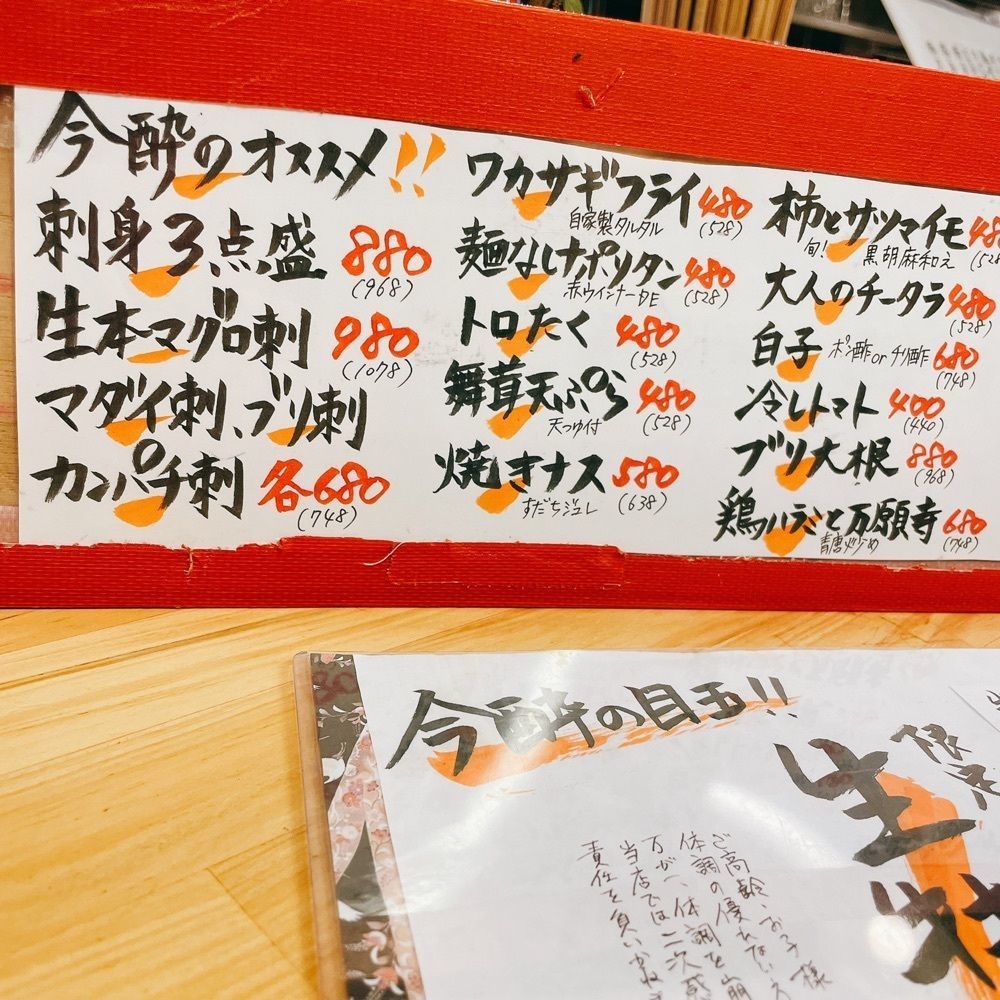 今酔のオススメ!!
刺身3点盛 880
(968)
生本マグロ刺 980
(1078)
マダイ刺、ブリ刺
カンパチ刺 各680
(748)
ワカサギフライ 480
自家製タルタル (528)
麺なしナポリタン 480
赤ウインナーDE (528)
トロたく 480
(528)
舞茸天ぷら 480
天つゆ付 (528)
焼きナス 580
すだちジュレ (638)
柿とサツマイモ 48
旬! 黒胡麻和え (528
大人のチータラ 480
(528)
白子 ポン酢orチリ酢 680
(748)
冷しトマト 400
(440)
ブリ大根 880
(968)
鶏ハラミと万願寺 680
青唐炒め (748)
今酔の目玉!!
限
生
ご高齢、お子様
体調の優れない
万が一、体調を崩
当店では二次感
責任を負いかね